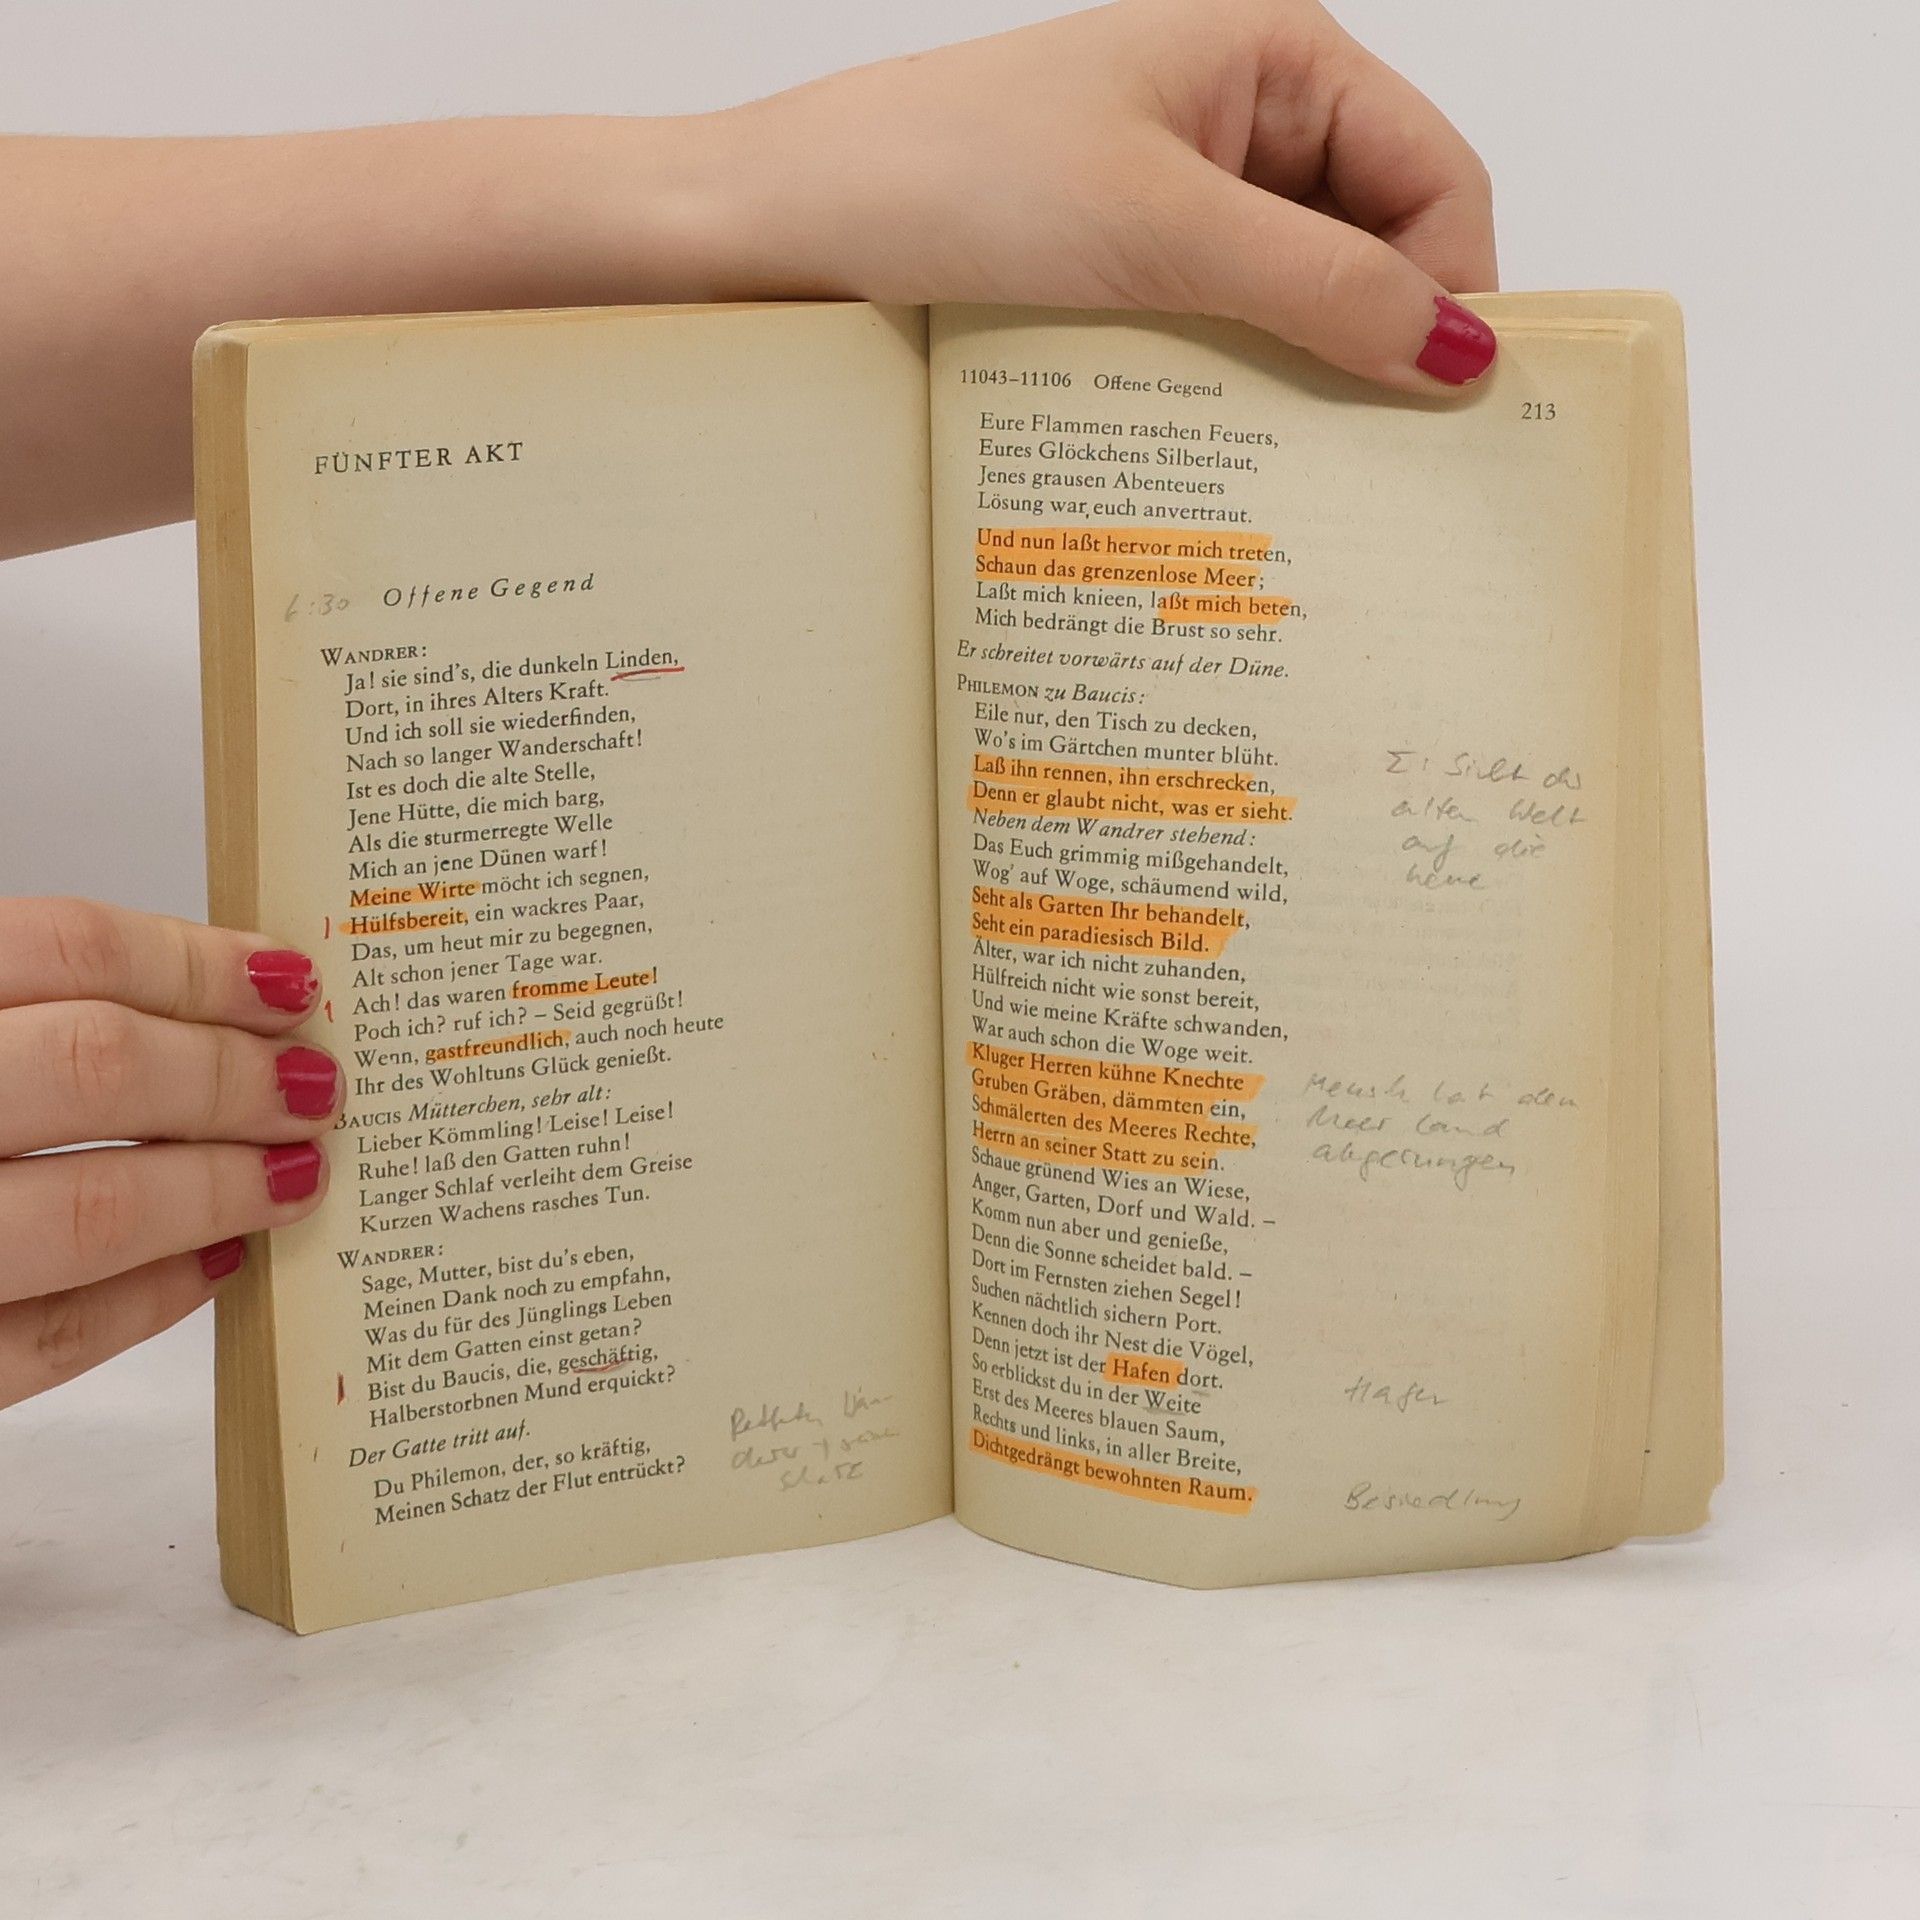 FÜNFTER AKT
6:30 Offene Gegend
WANDRER:
Ja! sie sind's, die dunkeln Linden,
Dort, in ihres Alters Kraft.
Und ich soll sie wiederfinden,
Nach so langer Wanderschaft!
Ist es doch die alte Stelle,
Jene Hütte, die mich barg,
Als die sturmerregte Welle
Mich an jene Dünen warf!
Meine Wirte möcht ich segnen,
Hülfsbereit, ein wackres Paar,
Das, um heut mir zu begegnen,
Alt schon jener Tage war.
Ach! das waren fromme Leute!
Poch ich? ruf ich? – Seid gegrüßt!
Wenn, gastfreundlich, auch noch heute
Ihr des Wohltuns Glück genießt.
BAUCIS Mütterchen, sehr alt:
Lieber Kömmling! Leise! Leise!
Ruhe! laß den Gatten ruhn!
Langer Schlaf verleiht dem Greise
Kurzen Wachens rasches Tun.
WANDRER:
Sage, Mutter, bist du's eben,
Meinen Dank noch zu empfahn,
Was du für des Jünglings Leben
Mit dem Gatten einst getan?
Bist du Baucis, die, geschäftig,
Halberstorbnen Mund erquickt?
Der Gatte tritt auf.
Du Philemon, der, so kräftig,
Meinen Schatz der Flut entrückt?
11043–11106 Offene Gegend
213
Eure Flammen raschen Feuers,
Eures Glöckchens Silberlaut,
Jenes grausen Abenteuers
Lösung war euch anvertraut.
Und nun laßt hervor mich treten,
Schaun das grenzenlose Meer;
Laßt mich knieen, laßt mich beten,
Mich bedrängt die Brust so sehr.
Er schreitet vorwärts auf der Düne.
PHILEMON zu Baucis:
Eile nur, den Tisch zu decken,
Wo's im Gärtchen munter blüht.
Laß ihn rennen, ihn erschrecken,
Denn er glaubt nicht, was er sieht.
Neben dem Wandrer stehend:
Das Euch grimmig mißgehandelt,
Wog' auf Woge, schäumend wild,
Seht als Garten Ihr behandelt,
Seht ein paradiesisch Bild.
Älter, war ich nicht zuhanden,
Hülfreich nicht wie sonst bereit,
Und wie meine Kräfte schwanden,
War auch schon die Woge weit.
Kluger Herren kühne Knechte
Gruben Gräben, dämmten ein,
Schmälerten des Meeres Rechte,
Herrn an seiner Statt zu sein.
Schaue grünend Wies an Wiese,
Anger, Garten, Dorf und Wald. –
Komm nun aber und genieße,
Denn die Sonne scheidet bald. –
Dort im Fernsten ziehen Segel!
Suchen nächtlich sichern Port.
Kennen doch ihr Nest die Vögel,
Denn jetzt ist der Hafen dort.
So erblickst du in der Weite
Erst des Meeres blauen Saum,
Rechts und links, in aller Breite,
Dichtgedrängt bewohnten Raum.
alten Welt
auf die
neue
Mensch hat dem
Meer Land
abgerungen
Hafen
Besiedlung